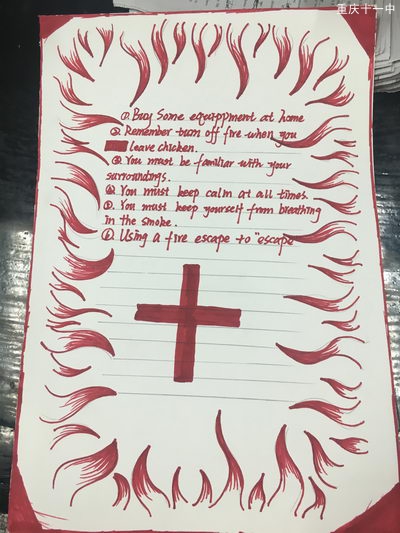 重庆十一中
① Buy some equippment at home
② Remember turn off fire when you
leave chicken.
③ You must be familiar with your
surroundings.
④ You must keep calm at all times.
⑤ You must keep yourself from breathing
in the smoke.
⑥ Using a fire escape to "escape"